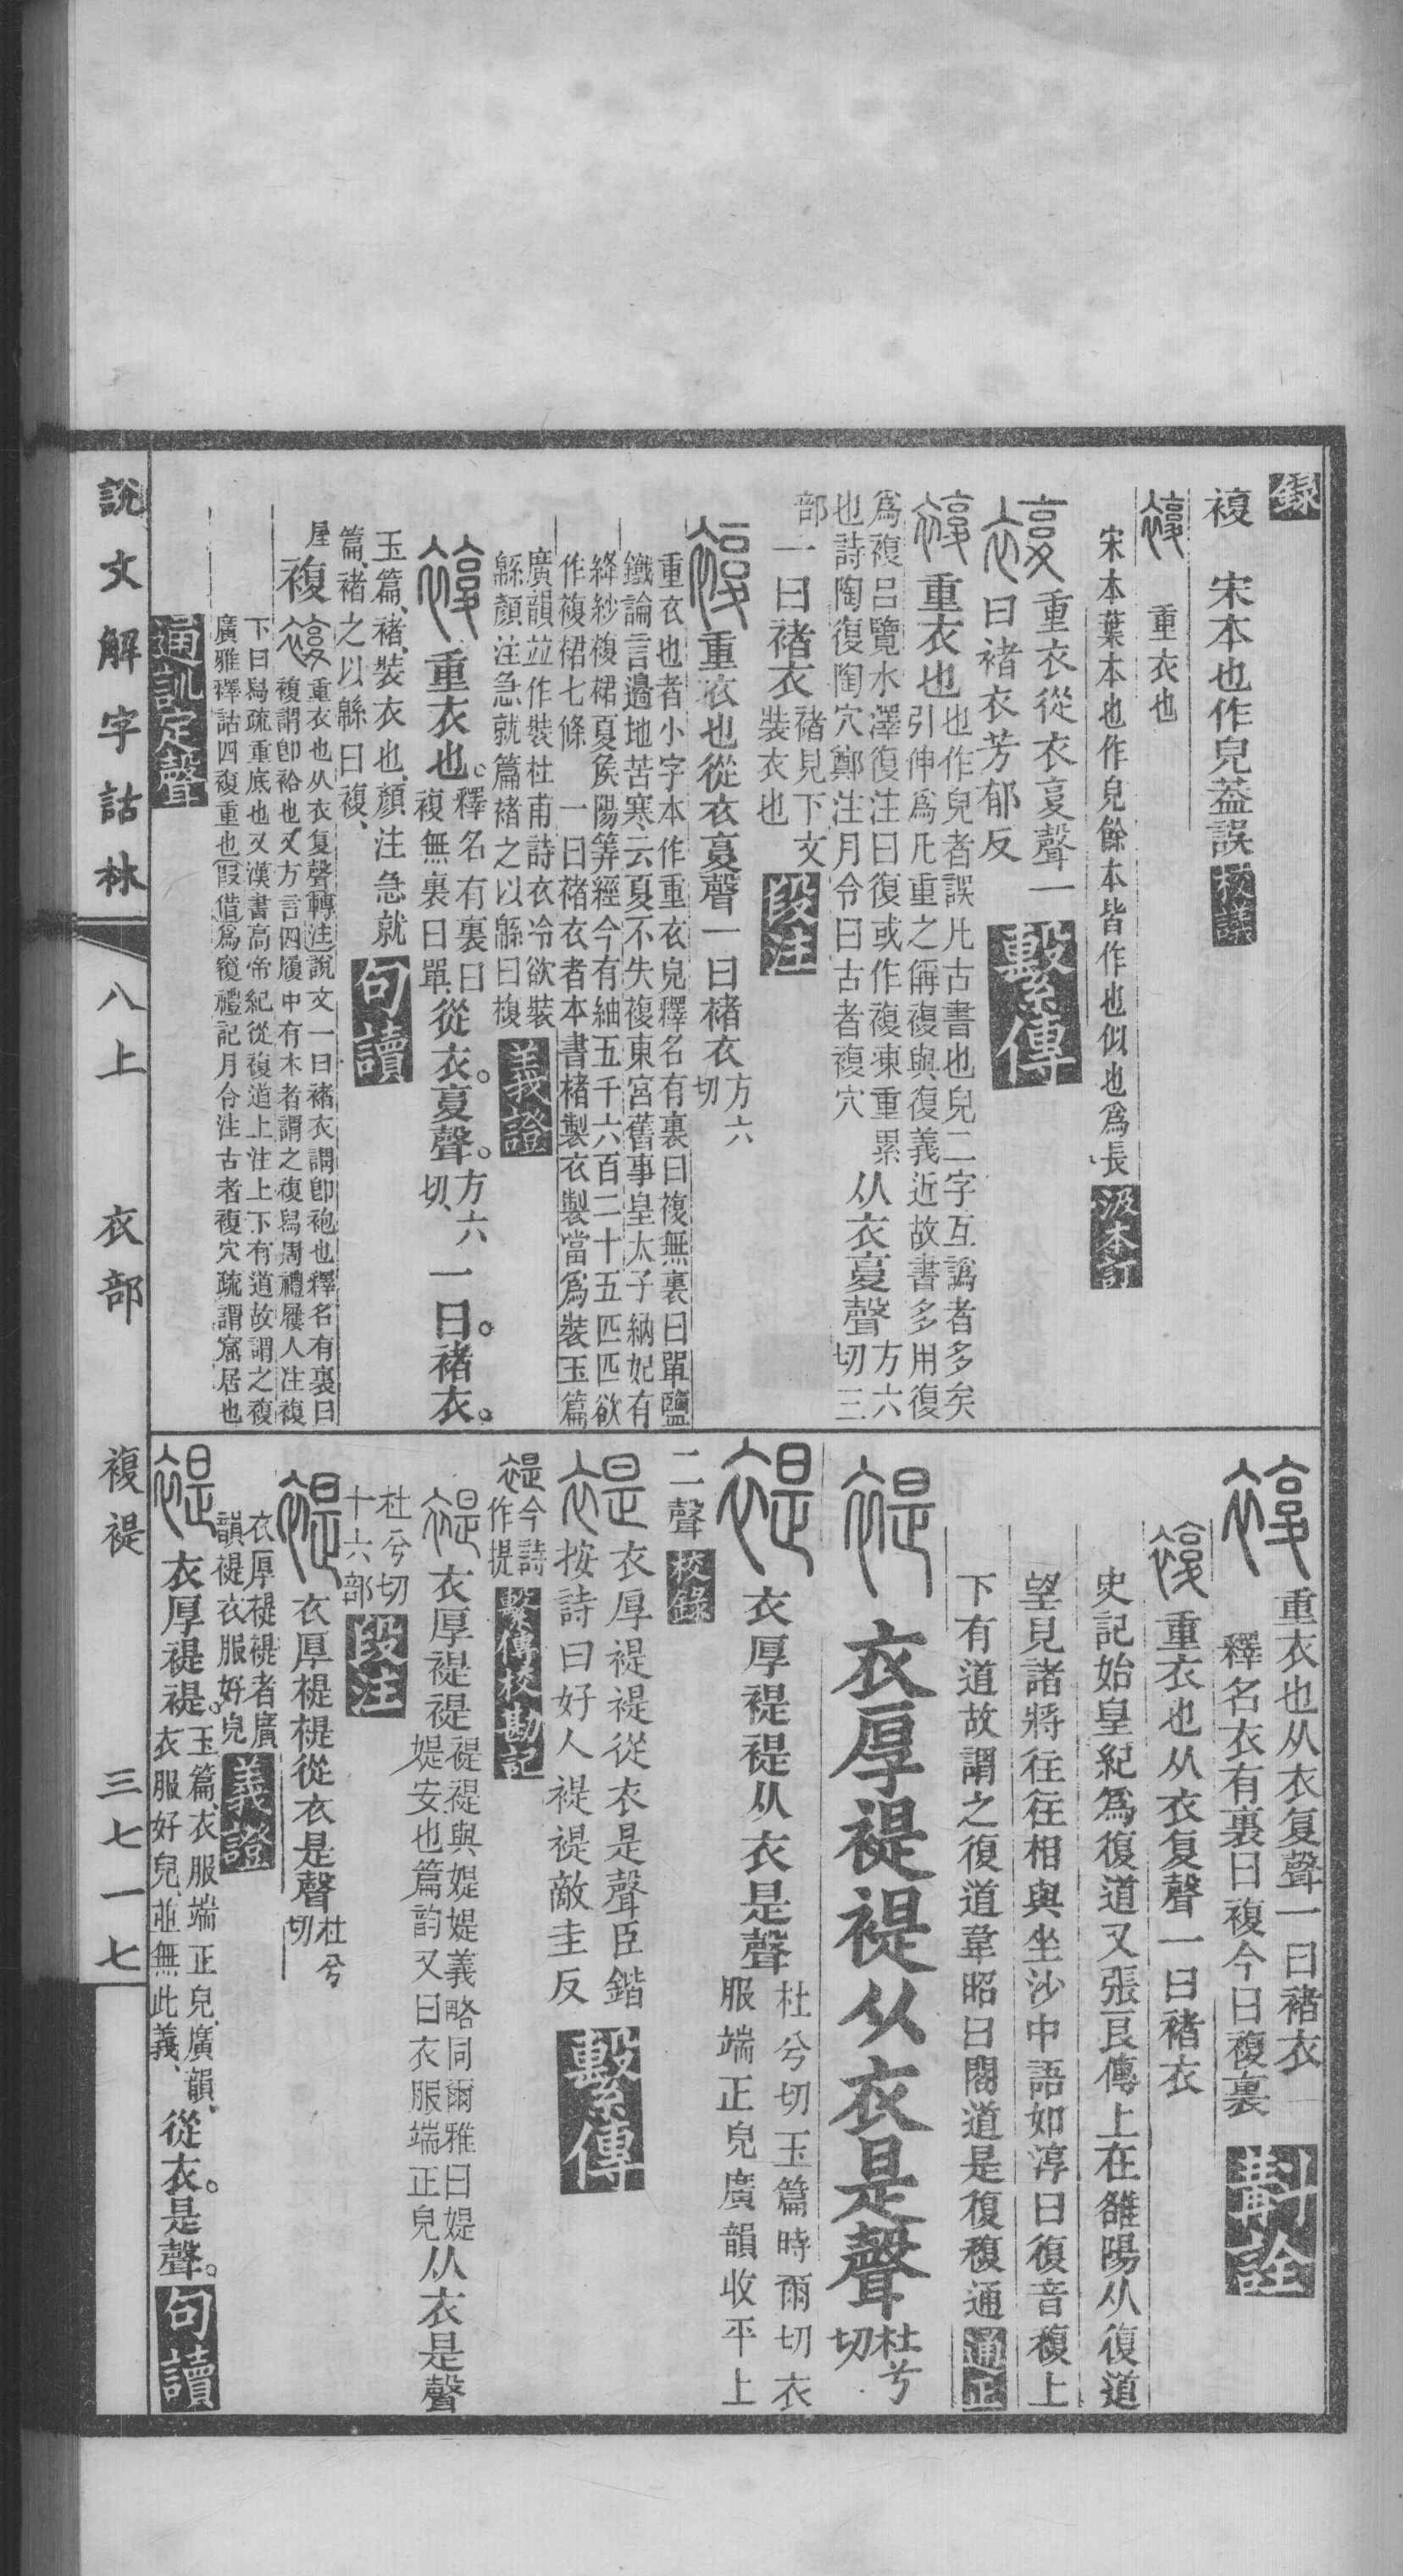 錄
複　宋本也作皃葢誤 校議
重衣也
宋本葉本也作皃餘本皆作也似也爲長 汲本訂
重衣從衣复聲一
曰褚衣芳郁反 繫傳
重衣也
也作皃者誤凡古書也皃二字互譌者多矣
引伸爲凡重之偁複與復義近故書多用復
爲複呂覽水澤復注曰復或作複凍重累
也詩陶復陶穴鄭注月令曰古者複穴
从衣复聲
方六切三
部
一曰褚衣
褚見下文
裝衣也
段注
重衣也從衣复聲一曰褚衣
方六
切
重衣也者小字本作重衣皃釋名有裏曰複無裏曰單鹽
鐵論言邊地苦寒云夏不失複東宮舊事皇太子納妃有
絳紗複裙夏侯陽筭經今有紬五千六百二十五匹匹欲
作複裙七條　一曰褚衣者本書楮製衣製當爲裝玉篇
廣韻竝作裝杜甫詩衣冷欲裝
緜顏注急就篇褚之以緜曰複
義證
重衣也
釋名有裏曰
複無裏曰單
從衣。复聲。
方六
切
一曰。褚衣。
玉篇、褚、裝衣也、顏注急就
篇、褚之以緜曰複、
句讀
屋
複
重衣也从衣复聲轉注說文一曰褚衣謂卽袍也釋名有裏曰
複謂卽袷也又方言四履中有木者謂之複舄周禮屨人注複
下曰舄疏重底也又漢書高帝紀從複道上注上下有道故謂之複
廣雅釋詁四複重也假借爲𥨍禮記月令注古者複穴疏謂窟居也
通訓定聲
重衣也从衣复聲一曰褚衣
釋名衣有裏曰複今曰複裏 斠詮
重衣也从衣复聲一曰褚衣
史記始皇紀爲復道又張良傳上在雒陽从復道
望見諸將往往相與坐沙中語如淳曰復音複上
下有道故謂之復道韋昭曰閣道是復複通 通正
衣厚褆褆从衣是聲
杜兮
切
衣厚褆褆从衣是聲
杜兮切玉篇時爾切衣
服端正皃廣韻收平上
二聲 校錄
衣厚褆褆從衣是聲臣鍇
按詩曰好人褆褆敵圭反 繫傳
今詩
作提
繫傳校勘記
衣厚褆褆
褆褆與媞媞義略同爾雅曰媞
媞安也篇韵又曰衣服端正皃
从衣是聲
杜兮切
十六部
段注
衣厚褆褆從衣是聲
杜兮
切
衣厚褆褆者廣
韻褆衣服好皃
義證
衣厚褆褆。
玉篇、衣服端正皃、廣韻、
衣服好皃、竝無此義、
從衣。是聲。
句讀
說文解字詁林　八上　衣部　複褆　三七一七